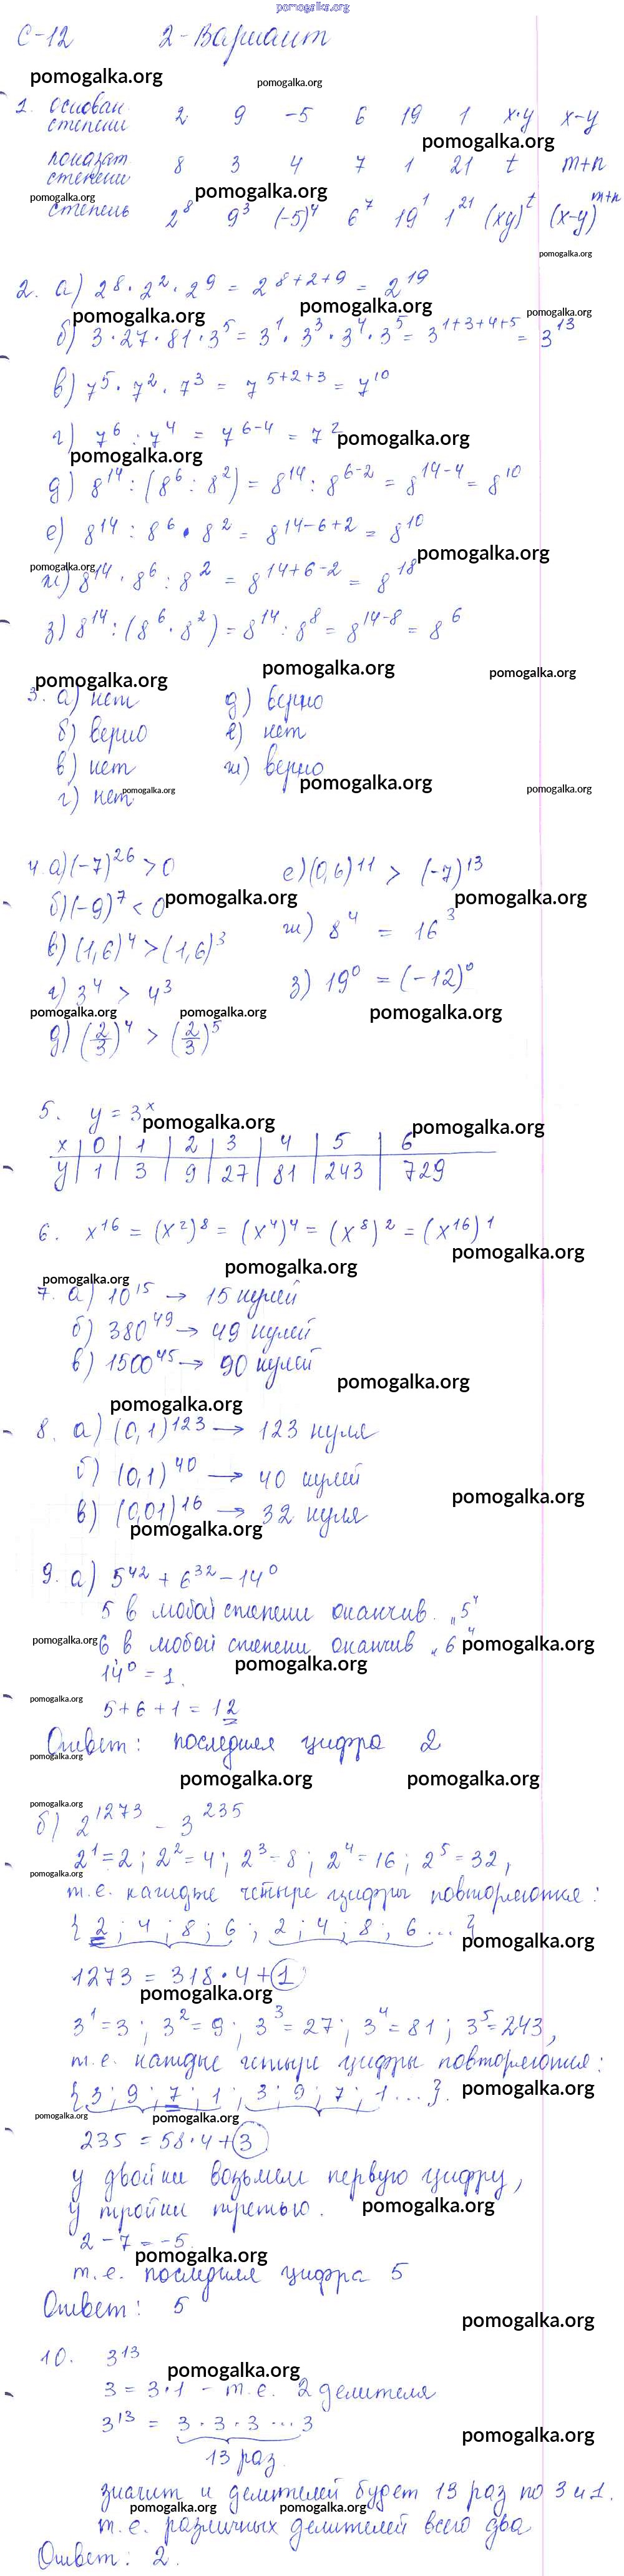 pomogalka.org
С-12 2-Вариант
pomogalka.org pomogalka.org
1. основан степени 2 9 -5 6 19 1 x·y x-y
pomogalka.org
показат степени 8 3 4 7 1 21 t m+n
pomogalka.org pomogalka.org
степень 2^8 9^3 (-5)^4 6^7 19^1 1^21 (xy)^t (x-y)^m+n
pomogalka.org
2. а) 2^8 · 2^2 · 2^9 = 2^8+2+9 = 2^19
pomogalka.org pomogalka.org pomogalka.org
б) 3·27·81·3^5 = 3^1·3^3·3^4·3^5 = 3^1+3+4+5 = 3^13
в) 7^5 · 7^2 · 7^3 = 7^5+2+3 = 7^10
г) 7^6 : 7^4 = 7^6-4 = 7^2 pomogalka.org
pomogalka.org
д) 8^14 : (8^6 : 8^2) = 8^14 : 8^6-2 = 8^14-4 = 8^10
е) 8^14 : 8^6 · 8^2 = 8^14-6+2 = 8^10
pomogalka.org pomogalka.org
ж) 8^14 · 8^6 : 8^2 = 8^14+6-2 = 8^18
з) 8^14 : (8^6 · 8^2) = 8^14 : 8^8 = 8^14-8 = 8^6
pomogalka.org pomogalka.org pomogalka.org
3. а) нет д) верно
б) верно е) нет
в) нет ж) верно
pomogalka.org pomogalka.org pomogalka.org
г) нет
4. а) (-7)^26 > 0 е) (0,6)^11 > (-7)^13
б) (-9)^7 < 0 pomogalka.org pomogalka.org
в) (1,6)^4 > (1,6)^3 ж) 8^4 = 16^3
г) 3^4 > 4^3 з) 19^0 = (-12)^0
pomogalka.org pomogalka.org pomogalka.org
д) (2/3)^4 > (2/3)^5
5. y = 3^x
pomogalka.org pomogalka.org
x | 0 | 1 | 2 | 3 | 4 | 5 | 6
y | 1 | 3 | 9 | 27 | 81 | 243 | 729
6. x^16 = (x^2)^8 = (x^4)^4 = (x^8)^2 = (x^16)^1
pomogalka.org
pomogalka.org
pomogalka.org
7. а) 10^15 → 15 нулей
б) 380^49 → 49 нулей
в) 1500^45 → 90 нулей
pomogalka.org
pomogalka.org
8. а) (0,1)^123 → 123 нуля
б) (0,1)^40 → 40 нулей
pomogalka.org
в) (0,01)^16 → 32 нуля
pomogalka.org
9. а) 5^42 + 6^32 - 14^0
5 в любой степени оканчив. „5"
pomogalka.org 6 в любой степени оканчив „6" pomogalka.org
pomogalka.org
14^0 = 1.
pomogalka.org
5+6+1 = 12
Ответ: последняя цифра 2
pomogalka.org
pomogalka.org pomogalka.org
pomogalka.org
б) 2^1273 - 3^235
2^1=2; 2^2=4; 2^3=8; 2^4=16; 2^5=32,
pomogalka.org
т.е. каждые четыре цифры повторяются:
{2; 4; 8; 6; 2; 4; 8; 6...}
pomogalka.org
1273 = 318·4+1
pomogalka.org
3^1=3; 3^2=9; 3^3=27; 3^4=81; 3^5=243,
т.е. каждые четыре цифры повторяются:
{3; 9; 7; 1; 3; 9; 7; 1...}. pomogalka.org
pomogalka.org pomogalka.org
235 = 58·4+3
у двойки возьмем первую цифру,
у тройки третью. pomogalka.org
2-7=-5.
pomogalka.org
т.е. последняя цифра 5
Ответ: 5
pomogalka.org
10. 3^13
pomogalka.org
3 = 3·1 - т.е. 2 делителя
3^13 = 3·3·3···3
pomogalka.org
13 раз.
значит и делителей будет 13 раз по 3 и 1.
pomogalka.org pomogalka.org
т.е. различных делителей всего два
Ответ: 2.